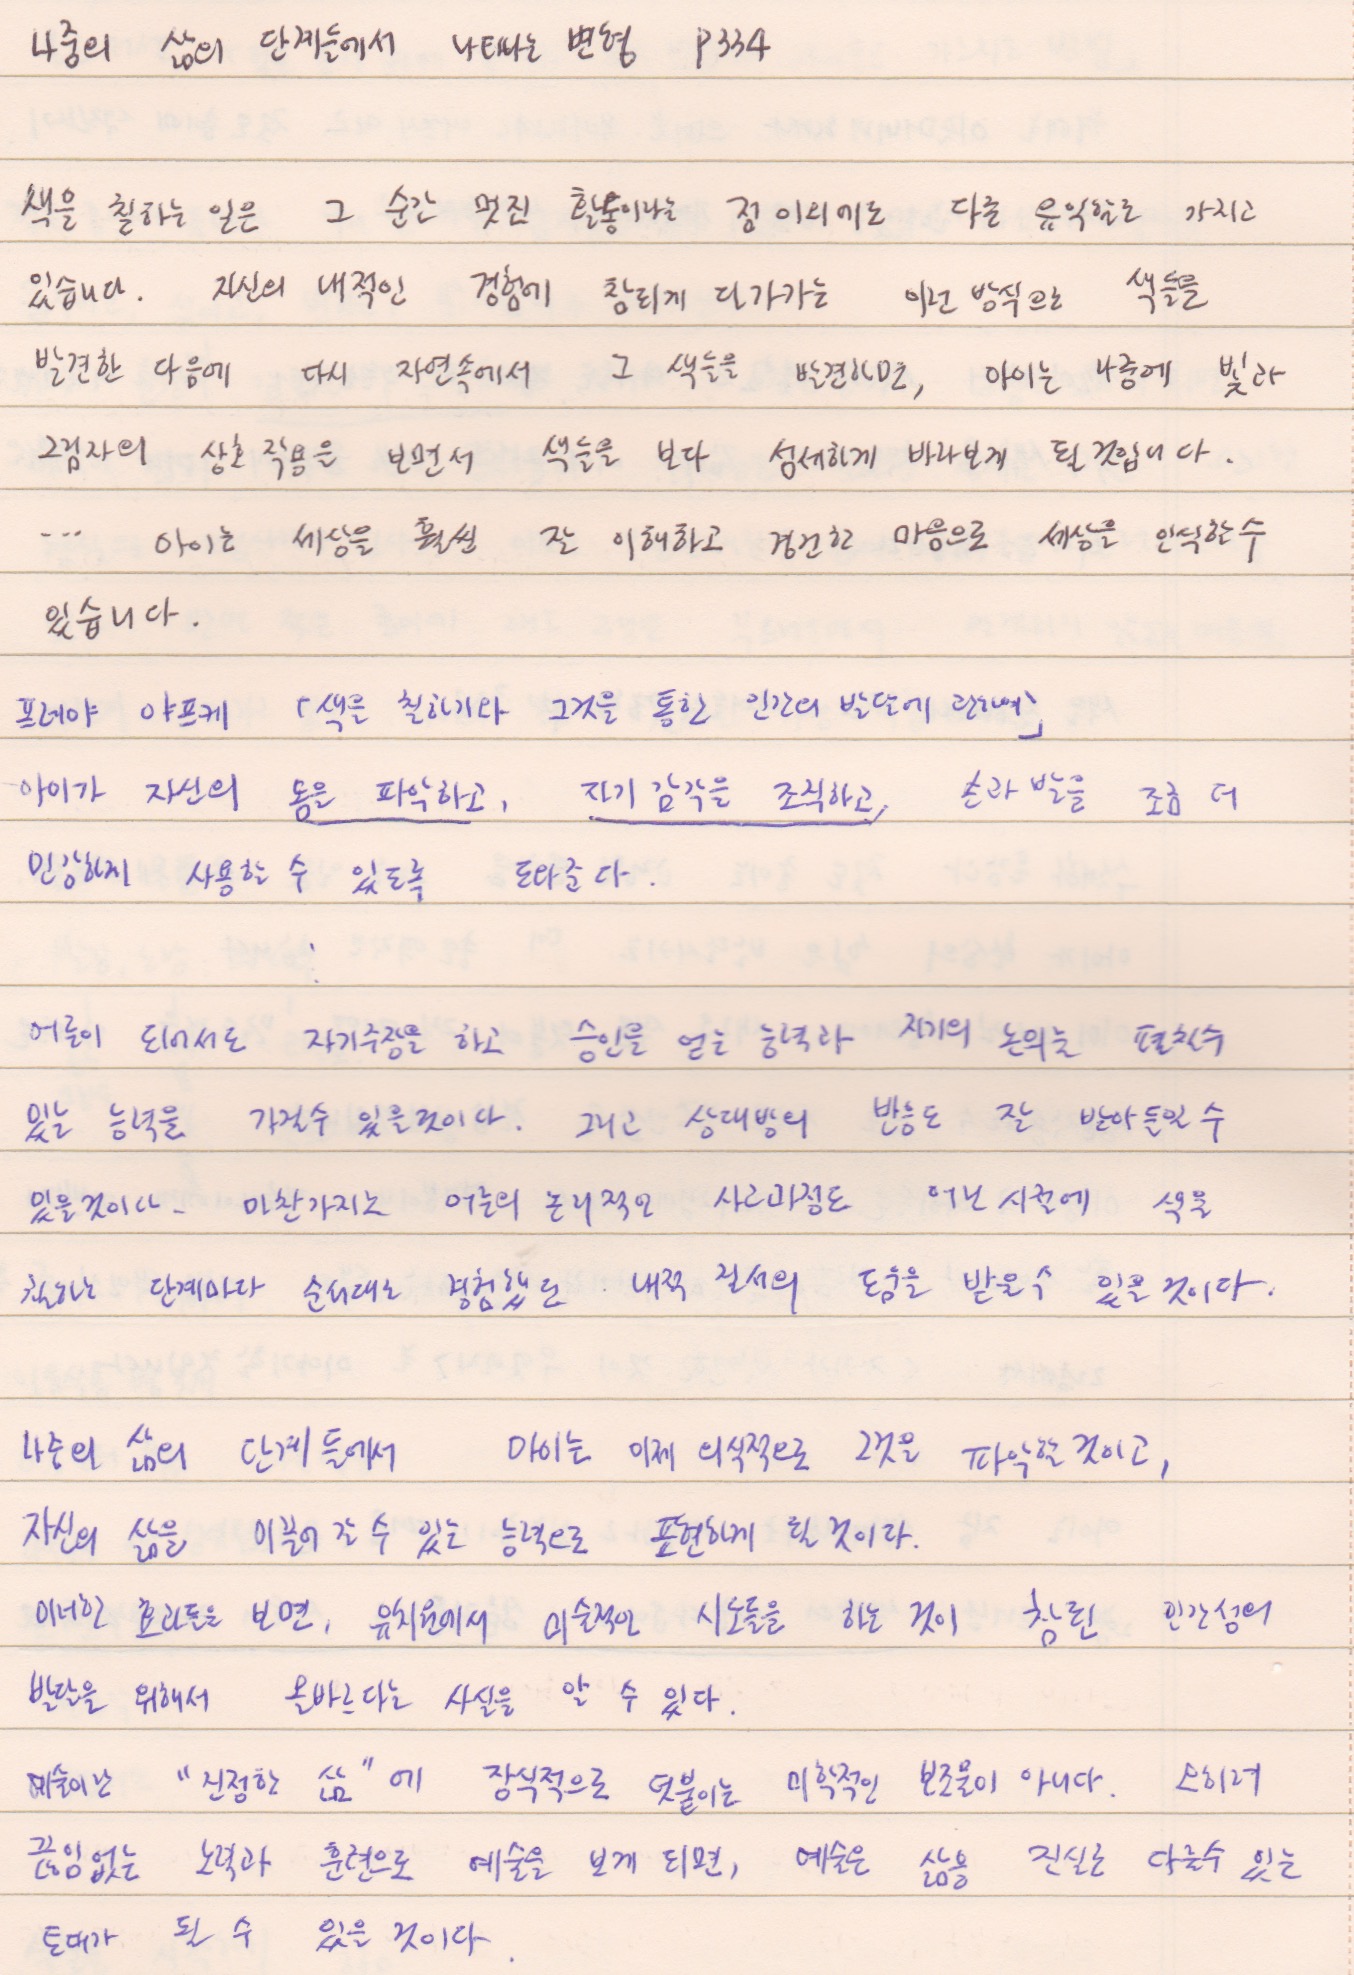 나중의 삶의 단계들에서 나타나는 변형 P334
색을 칠하는 일은 그 순간 멋진 활동이라는 점 이외에도 다른 유익함도 가지고
있습니다. 자신의 내적인 경험에 창의적으로 다가가는 이런 방식으로 색들을
발견한 다음에 다시 자연속에서 그 색들을 발견하면, 아이는 나중에 빛과
그림자의 상호작용을 보면서 색들을 보다 섬세하게 바라보게 될것입니다.
... 아이는 세상을 훨씬 잘 이해하고 경건한 마음으로 세상을 인식할수
있습니다.
프레야 야프케 「색을 칠하기와 그것을 통한 인간의 발달에 관하여」
아이가 자신의 몸을 파악하고, 자기 감각을 조직하고, 손과 발을 조금 더
민감하게 사용할 수 있도록 도와준다.
:
어른이 되어서도 자기주장을 하고 승인을 얻는 능력과 자기의 논의를 펼칠수
있는 능력을 가질수 있을것이다. 그리고 상대방의 반응도 잘 받아들일 수
있을것이다. 마찬가지로 어른의 논리적인 사고과정도 어린시절에 색을
칠하는 단계마다 순서대로 경험했던 내적 질서의 도움을 받을수 있을 것이다.
나중의 삶의 단계들에서 아이는 이제 의식적으로 그것을 파악할 것이고,
자신의 삶을 이끌어 갈 수 있는 능력으로 표현하게 될 것이다.
이러한 효과들을 보면, 유치원에서 미술적인 시도들을 하는 것이 참된 인간성의
발달을 위해서 올바르다는 사실을 알 수 있다.
예술이란 "진정한 삶"에 장식적으로 덧붙이는 미학적인 보조물이 아니다. 오히려
끊임없는 노력과 훈련으로 예술을 보게 되면, 예술은 삶을 진실로 다룰수 있는
토대가 될 수 있을 것이다.